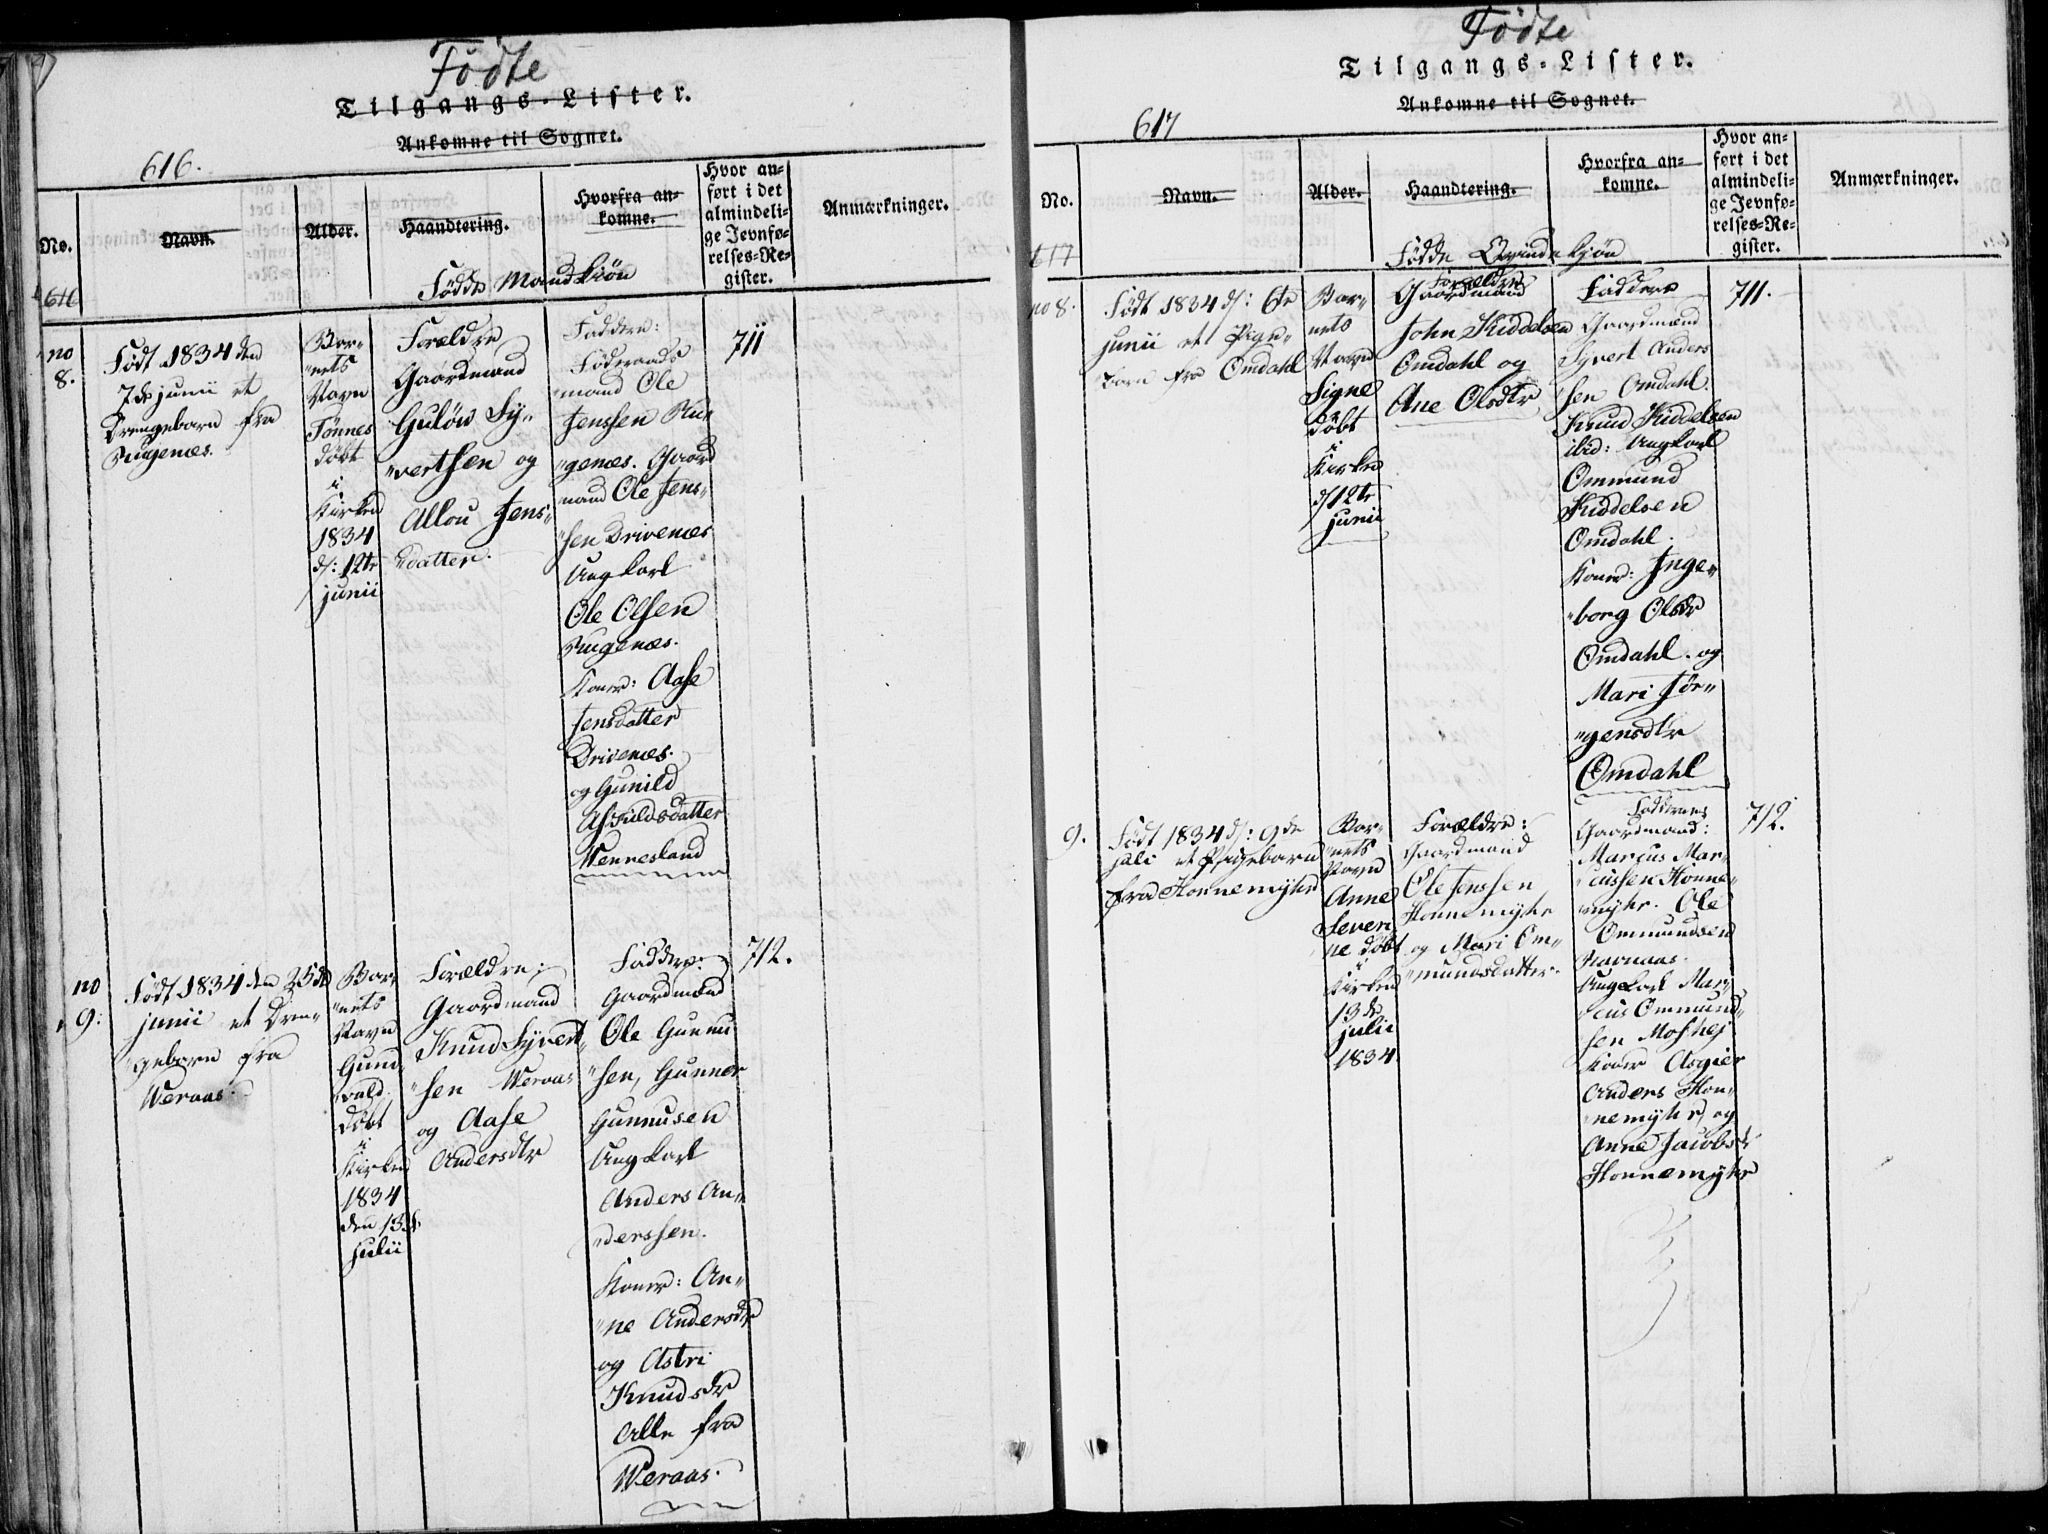 Födte
Tilgangs-Lister.
Ankomne til Sognet.
616.
No.
Navn.
Alder.
Haandtering.
Hvorfra an-
komne.
Hvor an-
ført i det
almindeli-
ge Jevnfø-
relses-Re-
gister.
Anmærkninger.
616
Födde Mandkiön
no
8.
Födt 1834 den
7de junii et
Drengebarn fra
Rugenæs.
Bar-
"nets
Navn
Tönnes
döbt
i
Kirken
1834
d: 12te
junii
Forældre
Gaardmand
Gulöw Sy-
"vertsen og
Allou Jens-
datter.
Faddere:
Föderaads
mand Ole
Jenssen Ru-
"genæs. Gaard
mand Ole Jens-
"sen Drivenæs
Ungkarl
Ole Olsen
Rugenæs.
Koner: Aase
Jensdatter
Drivenæs.
og Gunild
Asfuldsdatter
Wennesland
711
no
9.
Födt 1834 den 25de
junii et Dren-
"gebarn fra
Weraas.
Bar-
"nets
Navn
Gund
vald.
döbt
i
Kirken
1834
den 13de
julii
Forældre:
Gaardmand
Knud Syvert-
"sen Weraas
og Aase
Andersdtr
Faddere:
Gaardmænd
Ole Gunnu
"sen, Gunner
Gunnusen
Ungkarl
Anders An-
"derssen.
Koner: An-
"ne Andersdtr
og Astri
Knudsdtr
Alle fra
Weraas.
712.
Födte
Tilgangs-Lister.
Ankomne til Sognet.
617
No.
Navn.
Alder.
Haandtering.
Hvorfra an-
komne.
Hvor an-
ført i det
almindeli-
ge Jevnfø-
relses-Re-
gister.
Anmærkninger.
617
Födde Qvindekjön
no 8.
Födt 1834 d: 6te
junii et Pige-
barn fra Omdahl
Bar-
nets
Navn
Signe
döbt
i
Kirken
d 12te
junii
Forældre
Gaardmand
John Kiddelsen
Omdahl og
Ane Olsdtr
Faddere
Gaardmænd
Syvert Anders
sen Omdahl.
Knud Kiddelsen
ibid: Ungkarl
Ommund
Kiddelsen
Omdahl.
Koner: Inge-
"borg Olsdr
Omdahl. og
Mari Jör-
"gensdtr
Omdahl
711.
9.
Födt 1834 d: 9de
juli et Pigebarn
fra Honnemyhr
Bar-
"nets
Navn
Anne
Severi
ne döbt
i
Kirken
13de
julii
1834
Forældre:
Gaardmand
Ole Jenssen
Honnemyhr
og Mari Om-
"mundsdatter.
Faddernes
Gaardmænd:
Marcus Mar-
cussen Honne-
myhr. Ole
Ommundsen
Ungkarl Mar-
cus Ommund-
sen Moshej
Koner Asgier
Anders Hon-
nemyhr, og
Anne Jacobsdr
Honnemyhr
712.